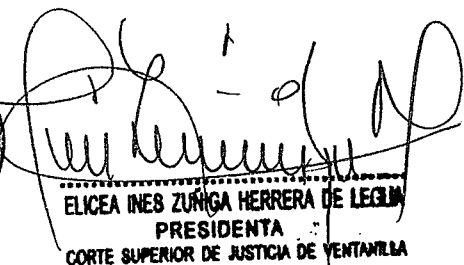 ELICEA INES ZUÑIGA HERRERA DE LEGUA
PRESIDENTA
CORTE SUPERIOR DE JUSTICIA DE VENTANILLA